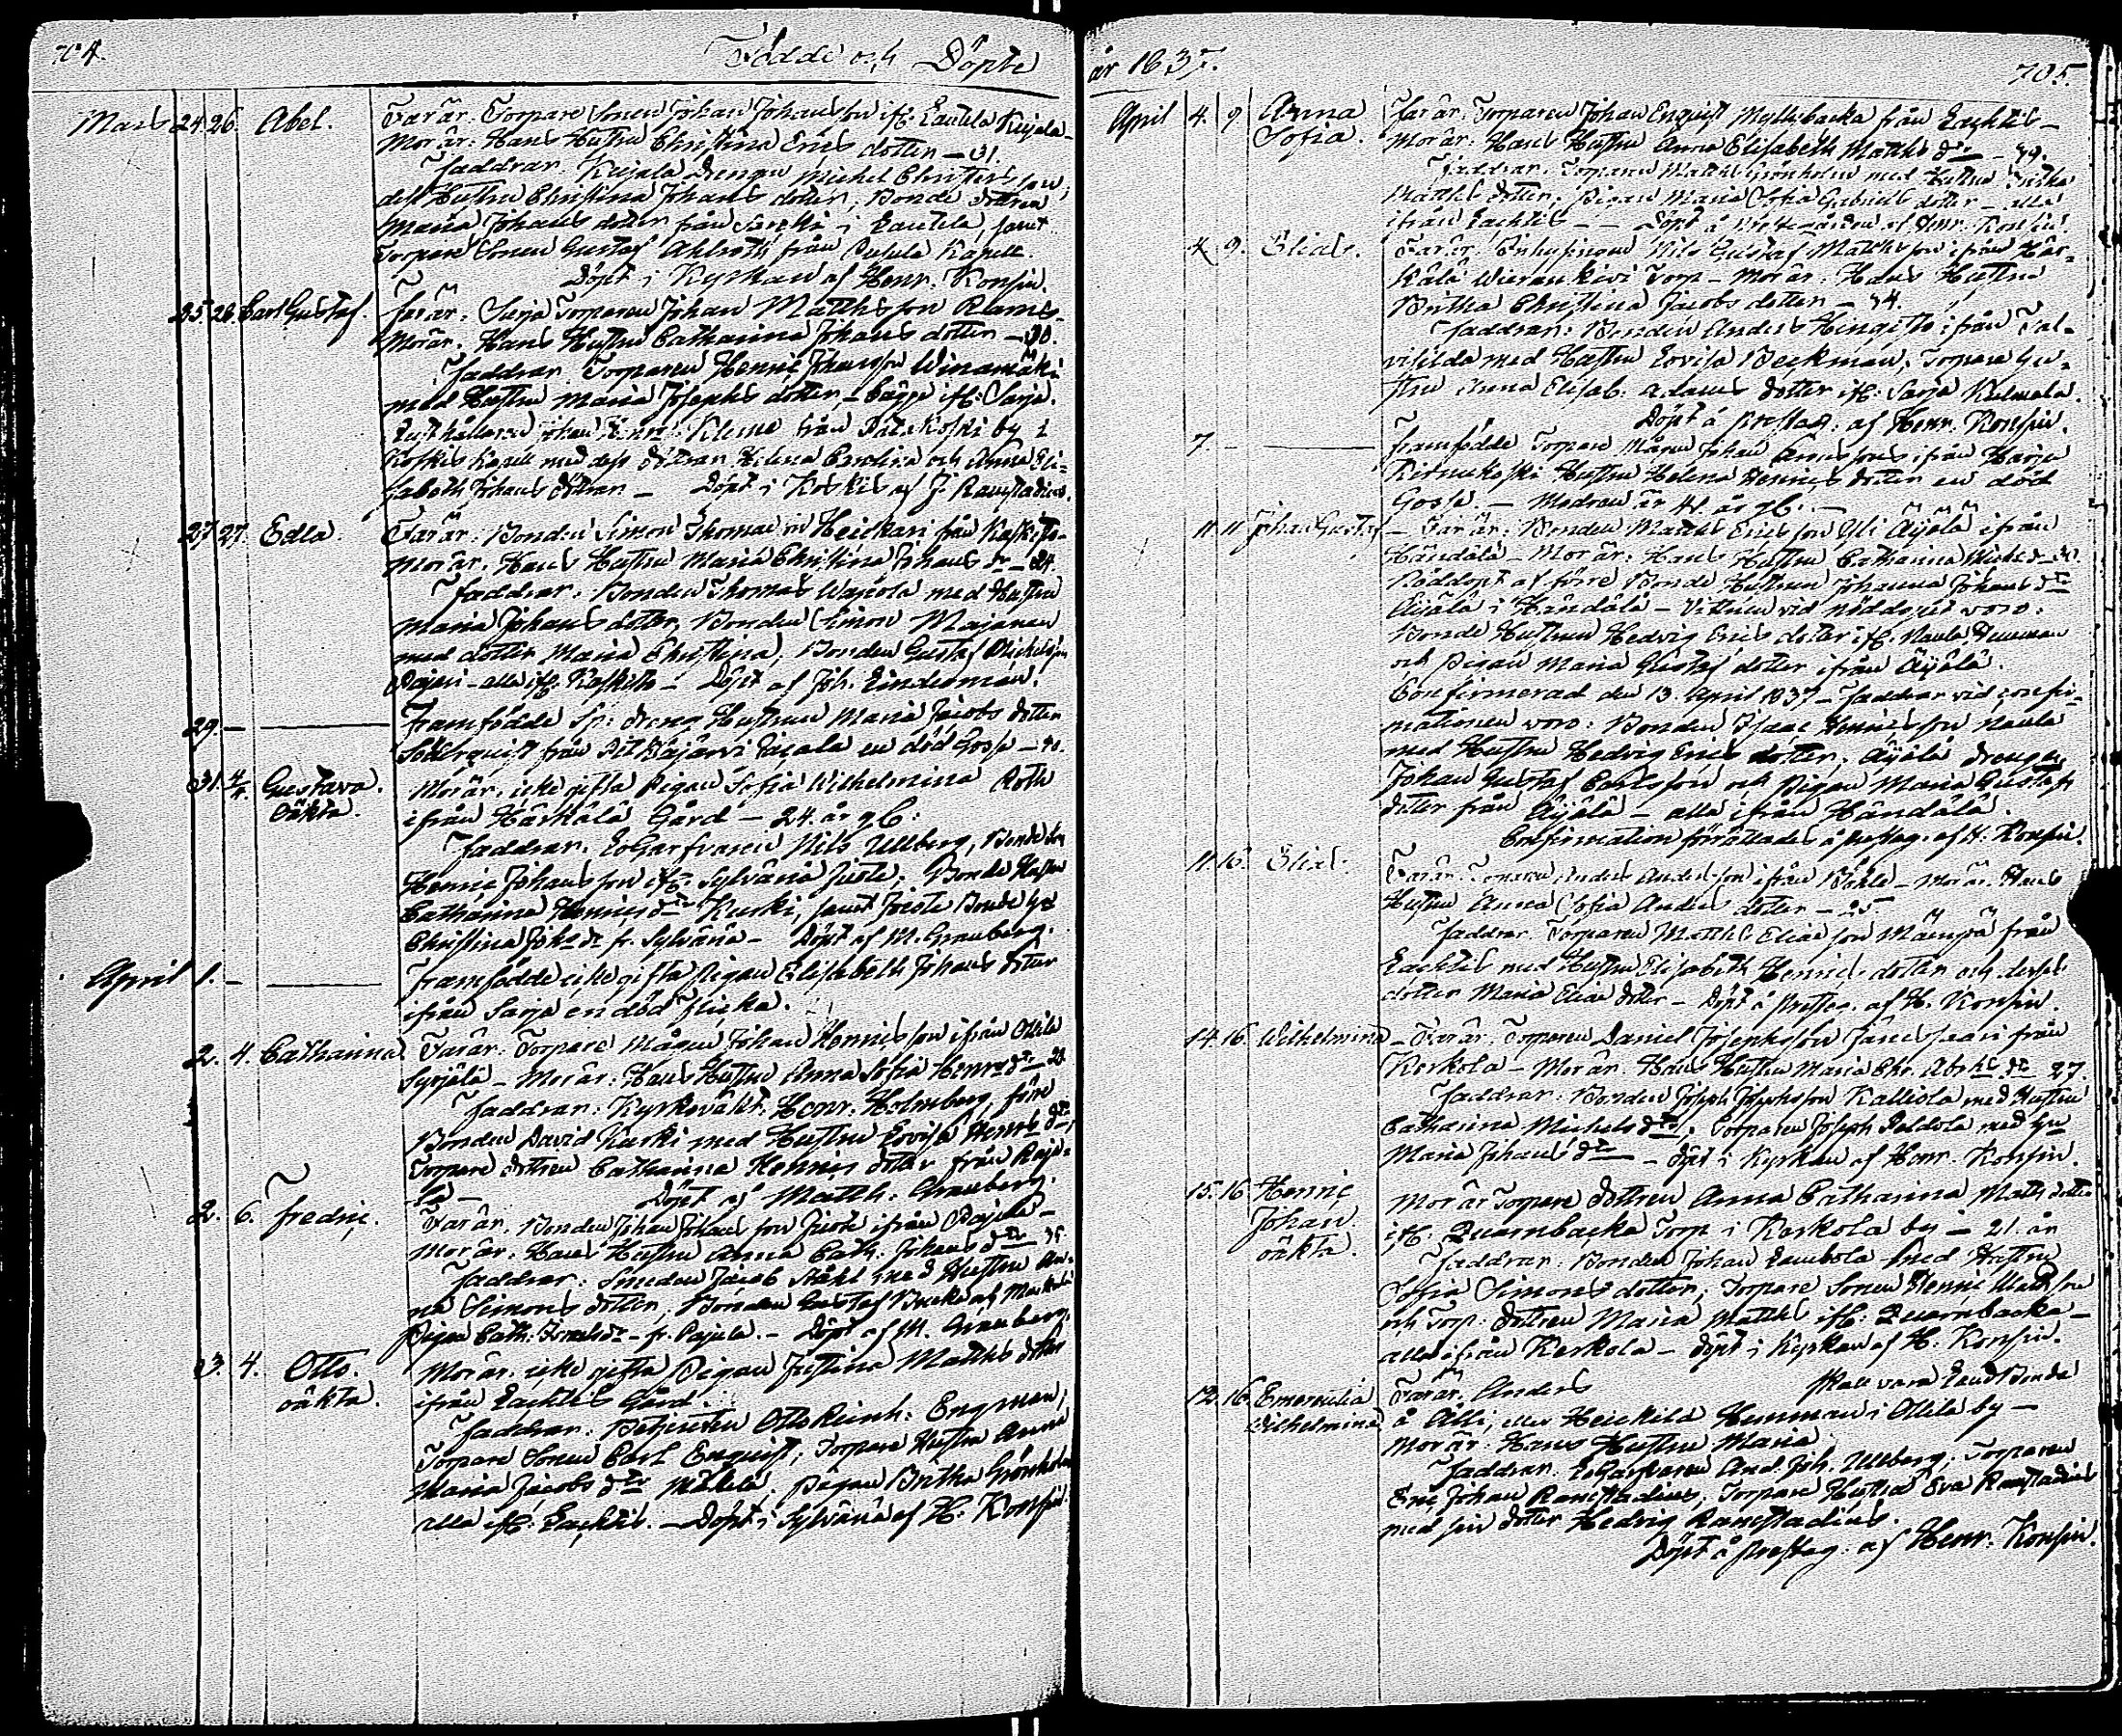 704.
Födde och Döpte
Mars 24 26 Abel. Far är. Torpare Sonen Johan Johansson ifr: Lautela Kujala_
Mor är: Hans Hustru Christina Erics dotter - 31.
Faddrar. Kujala Drengen Michel Christersson,
dess Hustru Christina Johans dotter, Bonde dottren
Maria Johans dotter från i Lautela, samt
Torpare Sonen Gustaf Ahlroth från Pusula Kapell.
Döpt i Kyrkan af Henr. Konsin.
25. 26. Carl Gustaf. Far är: Sarja Torparen Johan Matthsson Rams_
Mor är. Hans Hustru Catharina Johans dotter - 30.
Faddrar. Torparen Henric Johansson Winamäki
med Hustru Maria Josephs dotter, - bägge ifr: Sarja.
Rusthållaren Johan Kleme från by i
Koskis Kapell med dess döttrar Helena Carolina och Anna Eli=
sabeth Johans döttrar - Döpt i Koskis af J. Ramstadius.
27 27. Edla. Far är: Bonden Simon Thomasson Heickari från Kaskisto-
Mor är. Hans Hustru Maria Christina Johans dr - 24.
Faddrar: Bonden Thomas Waxola med Hustru
Maria Johans dotter, Bonden Simon Majanen
med dotter Maria Christina; Bonden Gustaf Michelsson
- alla ifr. Kaskisto - Döpt af Joh. Linderman.
29. - Framfödde Sp: dreng Hustrun Maria Jacobs dotter
Söderquist från en död Gosse - 40.
31. 4/4. Gustava. oäkta. Mor är. icke gifta Pigan Sofia Wilhelmina Roth
ifrån Härkälä Gård - 24. år gl:
Faddrar. Nils Ullberg, Bonde Son
Henric Johansson ifr: Sylvänä Juote; Bonde Hustrun
Catharina Henrics dr Kurki, samt Bonde
Christina Johs dr fr. Sylvänä - Döpt af M. Granberg.
April 1. - Framfödde icke gifta Pigan Elisabeth Johans dotter
ifrån Sarja en död flicka.
2. 4. Catharina Far är. Torpare Mågen Johan Henricsson ifrån Ollila
Syrjälä - Mor är: Hans Hustru Anna Sofia Henrs dr - 20.
Faddrar: Kyrkoväkt: Henr: Holmberg, förre
Bonden David Kurki med Hustru Lovisa Henrs dr,
Torpare dottren Catharina Henrics dotter från Paju=
la - Döpt af Matth: Granberg.
2. 6. Fredric. Far är. Bonden Johan Johansson Juote ifrån Pajula -
Mor är. Hans Hustru Anna Cath: Johans dr - 35.
Faddrar: Smeden Jacob Ståhl med Hustru An=
na Simons dotter, Bonden Gustaf
Pigan Cath: dr - fr. Pajula. - Döpt af M. Granberg.
3. 4. Otto. oäkta. Mor är. icke gifta Pigan Justina Matths dotter
ifrån Lachtis Gård.
Faddrar. Betjenten Otto Reinh: Engman,
Torpare Sonen Carl Enquist; Torpare Hustru Anna
Maria Jacobs dr Mäkelä. Pigan Britha Grönholm
alla ifr: Lachtis. - Döpt i Sylvänä af H. Konsin.
år 1837.
705.
April 4. 9 Anna Sofia. Far är. Torparen Johan Enquist Myllybacka från Lachtis -
Mor är: Hans Hustru Anna Elisabeth Matths dr - 39.
Faddrar. Torparen Matths Grönholm med Hustru Britha
Matths dotter; Pigan Maria Sofia Gabriels dotter - alla
ifrån Lachtis - - Döpt å af Henr. Konsin.
4 9. Elias. Far är: Inhysingen Nils Gustaf Matthsson ifrån Här=
kälä Torp - Mor är: Hans Hustru
Britha Christina Jacobs dotter - 34.
Faddrar: Bonden Anders Hingisto ifrån Tal=
visilda med Hustru Lovisa Beckman; Torpare Hu=
stru Anna Elisab: Adams dotter ifr: Sarja Kulmala.
Döpt å prestag: af Henr. Konsin.
7. - Framfödde Torpare Mågen Johan Ericssons ifrån Harju
Hustru Helena Henrics dotter en död
Gosse. - Modren är 41. år gl: -
11 11 Johan Gustaf - Far är: Bonden Matths Ericsson Yli Äijälä ifrån
Händälä - Mor är: Hans Hustru Catharina Michs dr - 30.
Nöddöpt af förre Bonde Hustrun Johanna Johans dr
Äijälä i Händälä - Vittnen vid nöddopet voro:
Bonde Hustrun Hedvig Erics dotter ifr. Naula Hemman
och Pigan Maria Gustaf dotter ifrån Äijälä.
Confirmerad den 13. April 1837 - Faddrar vid confir=
mationen voro: Bonden Isaac Henricsson Naula
med Hustru Hedvig Erics dotter; Äijälä drengen
Johan Gustaf Carlsson och Pigan Maria Gustafs
dotter från Äijälä - alla ifrån Händälä.
Confirmation förrättades å prestag. af H. Konsin.
11. 16. Elias. Far är. Torparen Anders Andersson ifrån - Mor är. Hans
Hustru Anna Sofia Anders dotter - 25.
Faddrar. Torparen Matths Eliasson Mäenpä från
Lachtis med Hustru Elisabeth Henrics dotter och desses
dotter Maria Eliae dotter - Döpt å prestag. af H. Konsin.
14. 16. Wilhelmina - Far är. Torparen Daniel Josephsson från
Kerkola - Mor är. Hans Hustru Maria Chr. Abrhs dr 27.
Faddrar: Bonden Joseph Josephsson Kalliola med Hustru
Catharina Michels dr, Torparen Joseph Peldola med Hu
Maria Johans dr - döpt i Kyrkan af Henr. Konsin.
15. 16 Henric Johan oäkta. Mor är Torpare dottren Anna Catharina Matth dotter
ifr. Quarnbacka Torp i Kerkola by - 21. år
Faddrar. Bonden Johan med Hustru
Sofia Simons dotter; Torpare Sonen Henric Matthsson
och Torp. dottren Maria Matths ifr: Quarnbacka -
alla ifrån Kerkola - döpt i Kyrkan af H. Konsin.
12. 16. Emerentia Wilhelmina Far är. Anders skall vara Bonde
å Alli, eller Heickilä Hemman i Ollila by -
Mor är: Hans Hustru Maria
Faddrar. And. Joh. Ullberg; Torparen
Eric Johan Ramstadius; Torpare Hustru Eva Ramstadius
med sin dotter Hedvig Ramstadius.
Döpt å prestag: af Henr. Konsin.